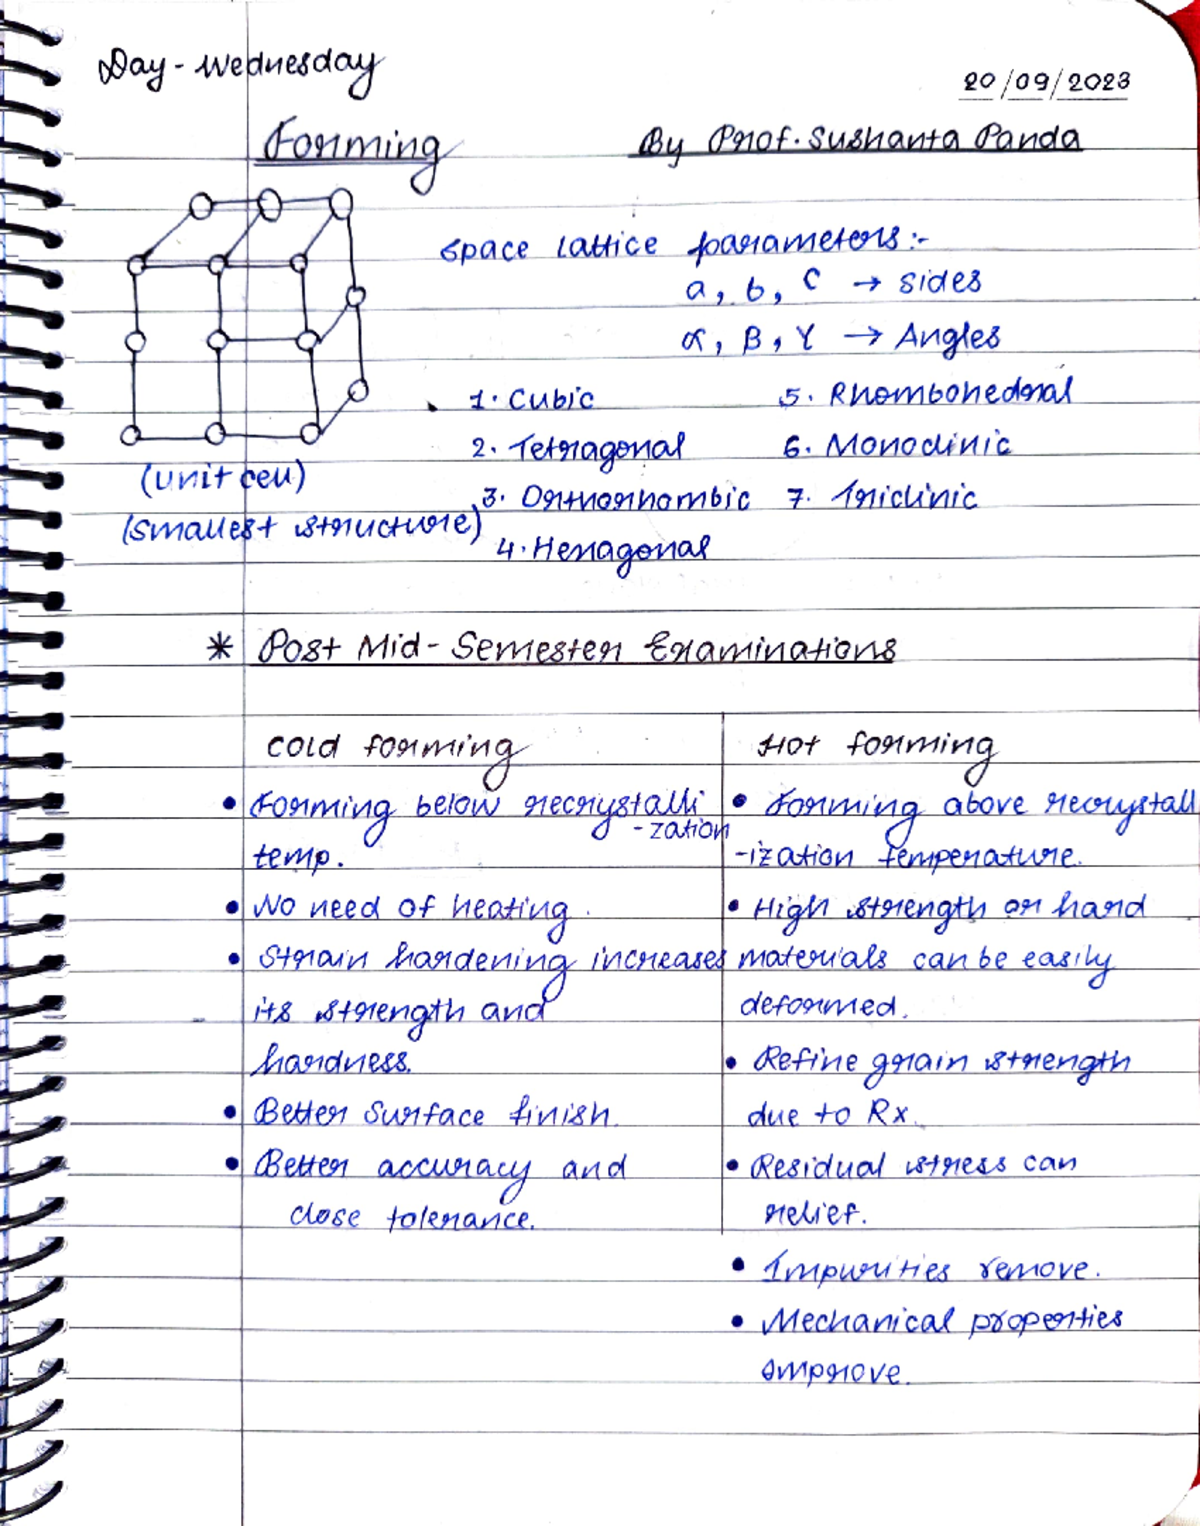 Day - Wednesday
20/09/2023
Forming
By Prof. Sushanta Panda
Space lattice parameters:-
a, b, c → sides
α, β, γ → Angles
1. Cubic
5. Rhombohedral
2. Tetragonal
6. Monoclinic
3. Orthorhombic
7. Triclinic
4. Hexagonal
(unit cell)
(smallest structure)
* Post Mid-Semester Examinations
Cold forming
• Forming below recrystalli
-zation
temp.
• No need of heating.
• Strain hardening increases
its strength and
hardness.
• Better surface finish.
• Better accuracy and
close tolerance.
Hot forming
• Forming above recrystall
-ization temperature.
• High strength or hard
materials can be easily
deformed.
• Refine grain strength
due to Rx.
• Residual stress can
relief.
• Impurities remove.
• Mechanical properties
improve.